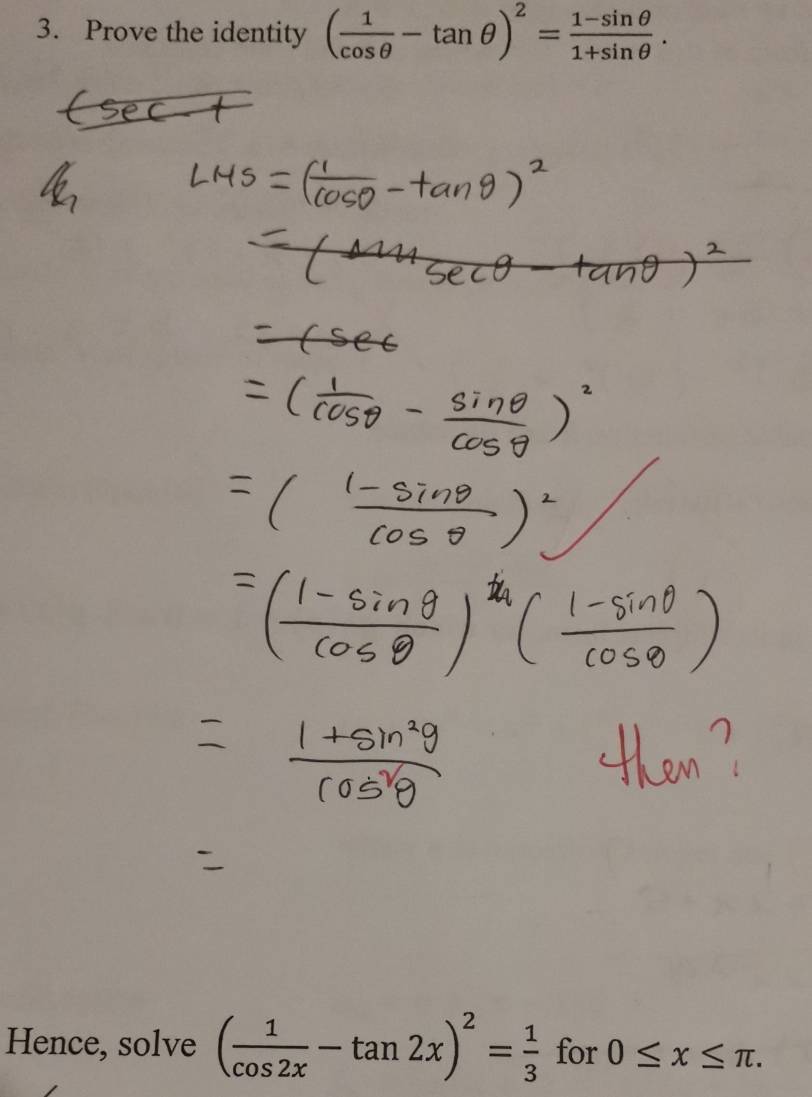 3. Prove the identity (1/cosθ − tan θ)² = (1−sin θ)/(1+sin θ) .
(sec t
LHS = (1/cosθ − tanθ)²
= ( secθ − tanθ)²
= (sec
= (1/cosθ − sinθ/cosθ)²
= ((1−sinθ)/cosθ)² ✓
= ((1−sinθ)/cosθ) ((1−sinθ)/cosθ)
= (1+sin²θ)/cos²θ then?
=
Hence, solve (1/cos 2x − tan 2x)² = 1/3 for 0 ≤ x ≤ π.